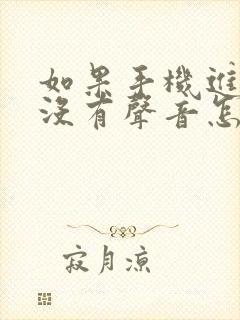 如果手機進
沒有聲音怎
寂月凉